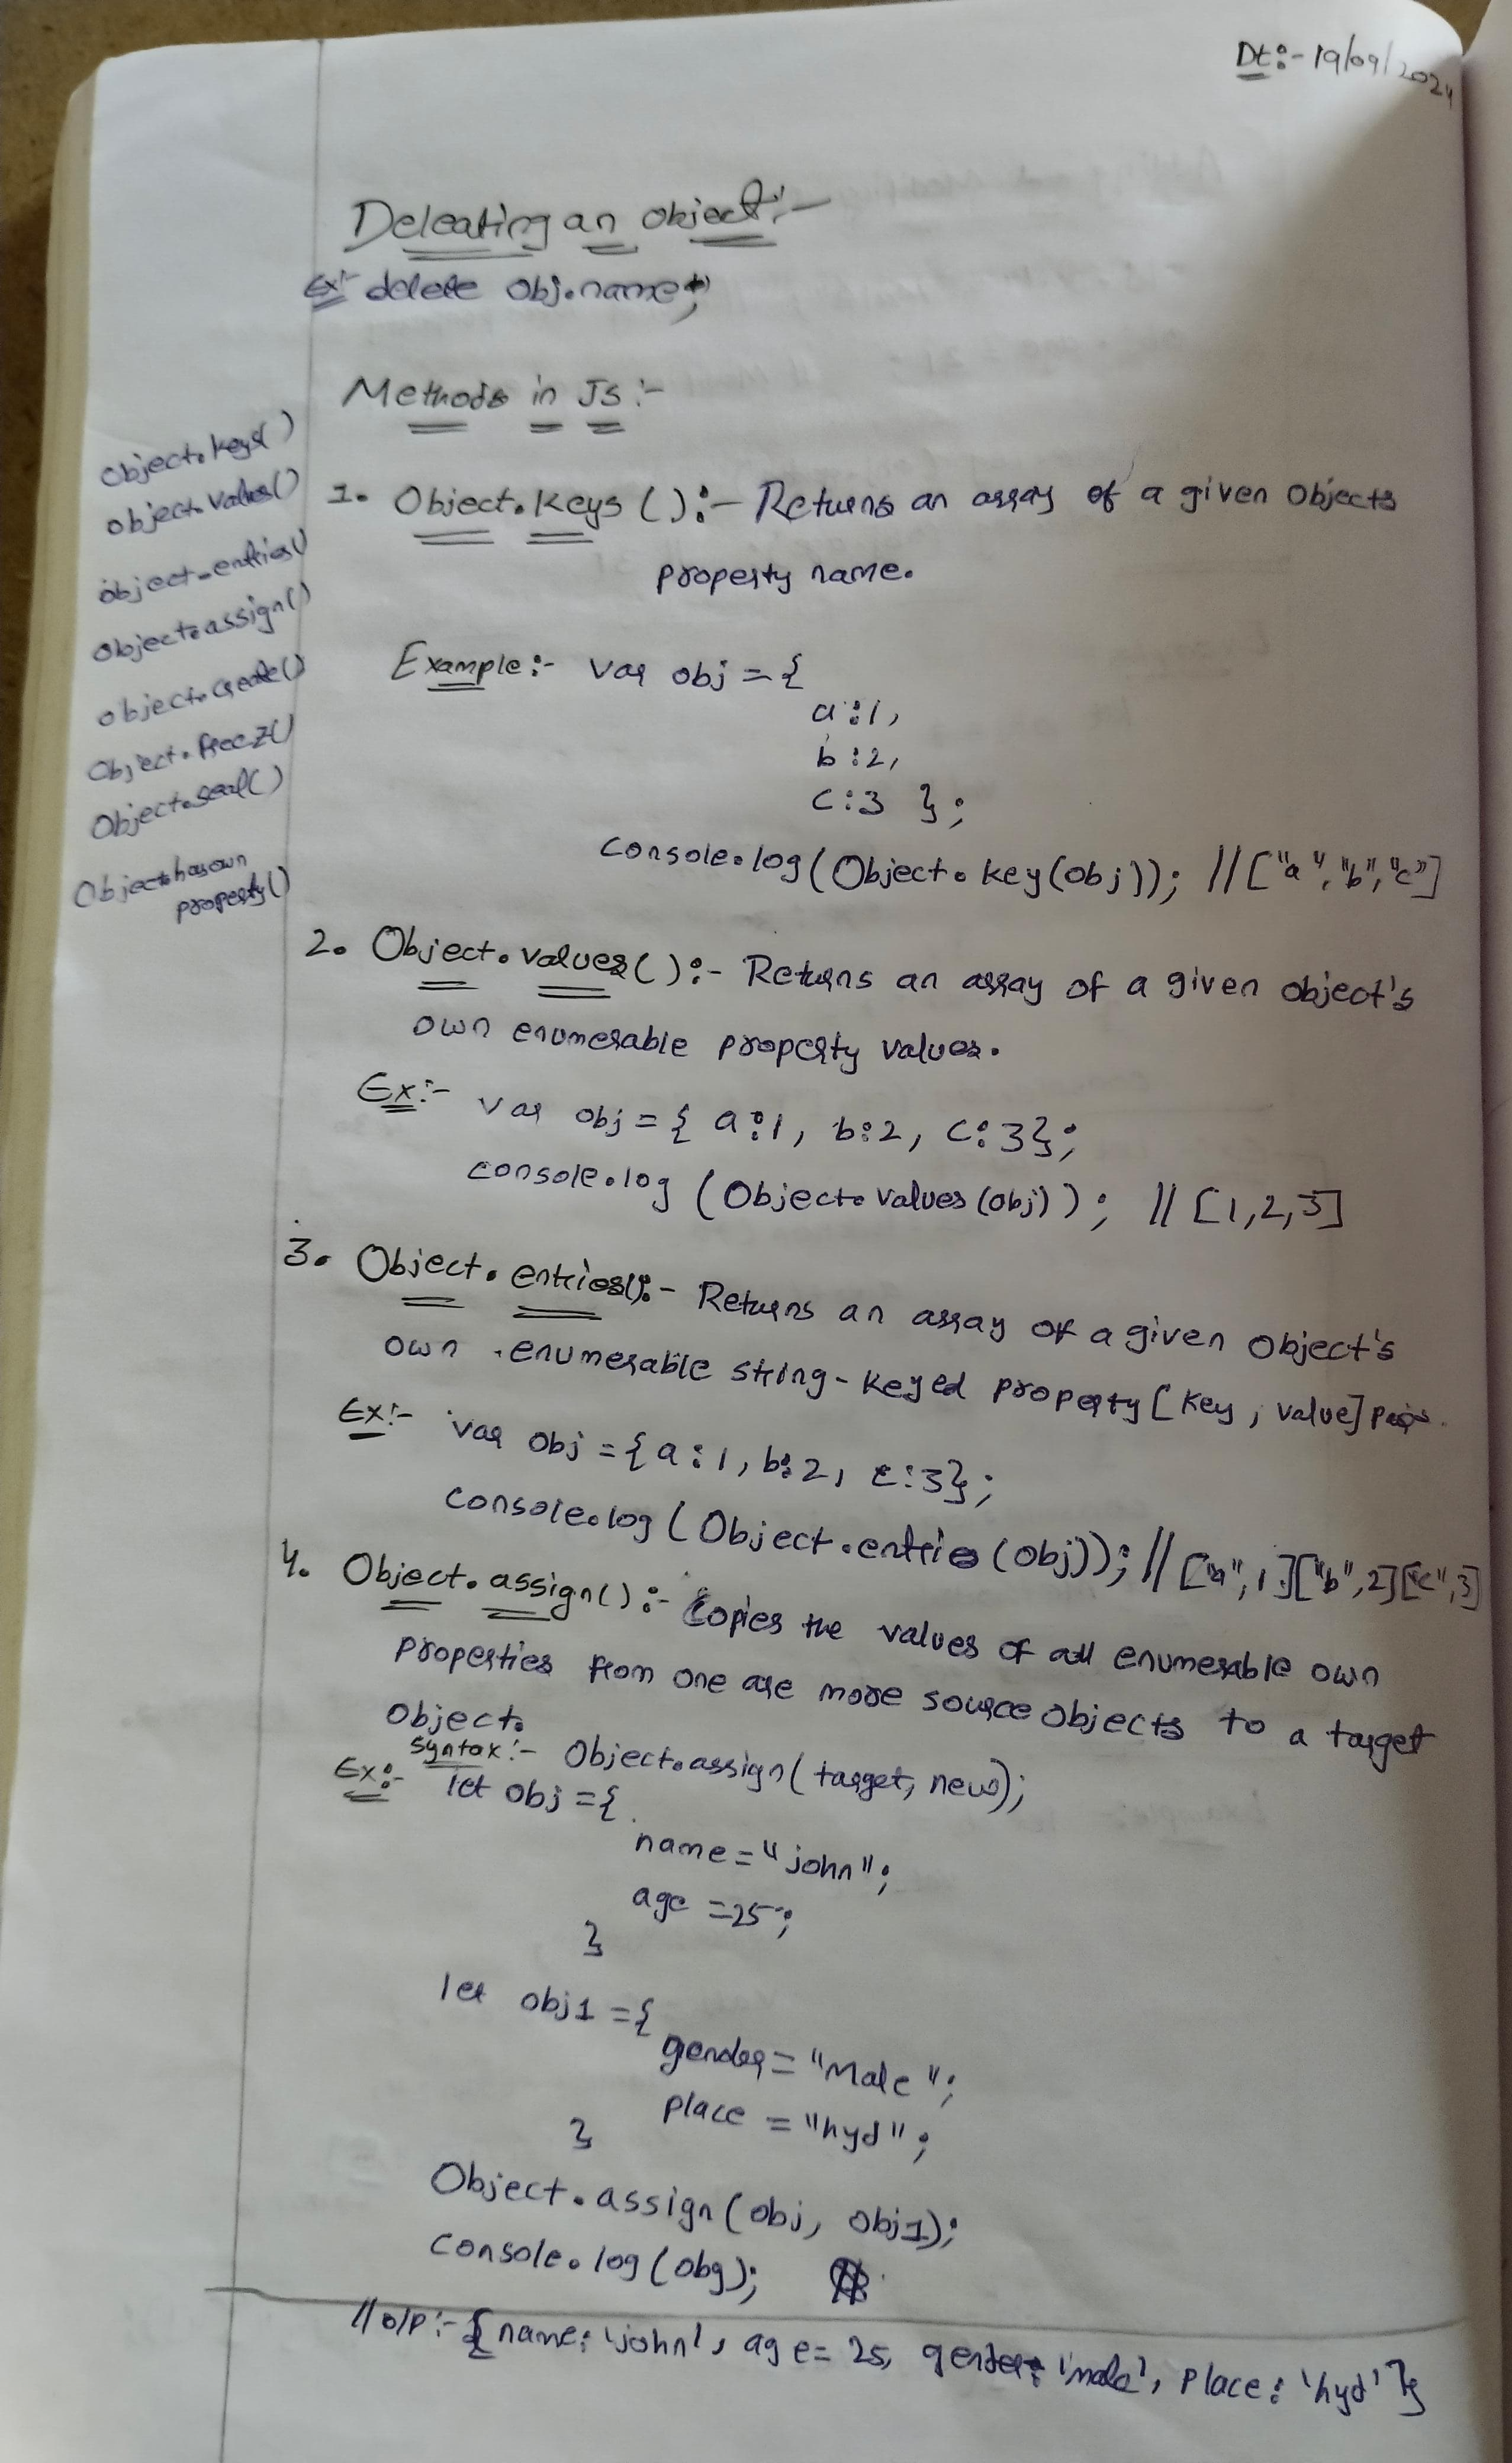 Dt:- 19/09/2024
Deleating an object:-
Ex:- delete obj.name;
Methods in Js :-
Object.keys()
object.values()
object.entries()
object.assign()
object.create()
Object.freez()
Object.seal()
Object.hasown
property()
1. Object.keys():- Returns an array of a given Objects
property name.
Example:- var obj = {
a:1,
b:2,
c:3 };
console.log(Object.key(obj)); //["a","b","c"]
2. Object.values():- Returns an array of a given object's
own enumerable property values.
Ex:- var obj = { a:1, b:2, c:3};
console.log (Object.values(obj)); // [1,2,3]
3. Object.entries():- Returns an array of a given object's
own enumerable string-keyed property [key, value] pairs.
Ex:- var obj = {a:1, b:2, c:3};
console.log (Object.entries(obj)); // ["a",1]["b",2]["c",3]
4. Object.assign():- Copies the values of all enumerable own
properties from one are more source objects to a target
object.
syntax:- Object.assign(target, new);
Ex:- let obj = {
name = "john";
age = 25;
}
let obj1 = {
gender = "Male";
place = "hyd";
}
Object.assign(obj, obj1);
console.log(obg);
// o/p:- {name: 'john', age= 25, gender: 'male', place: 'hyd'}